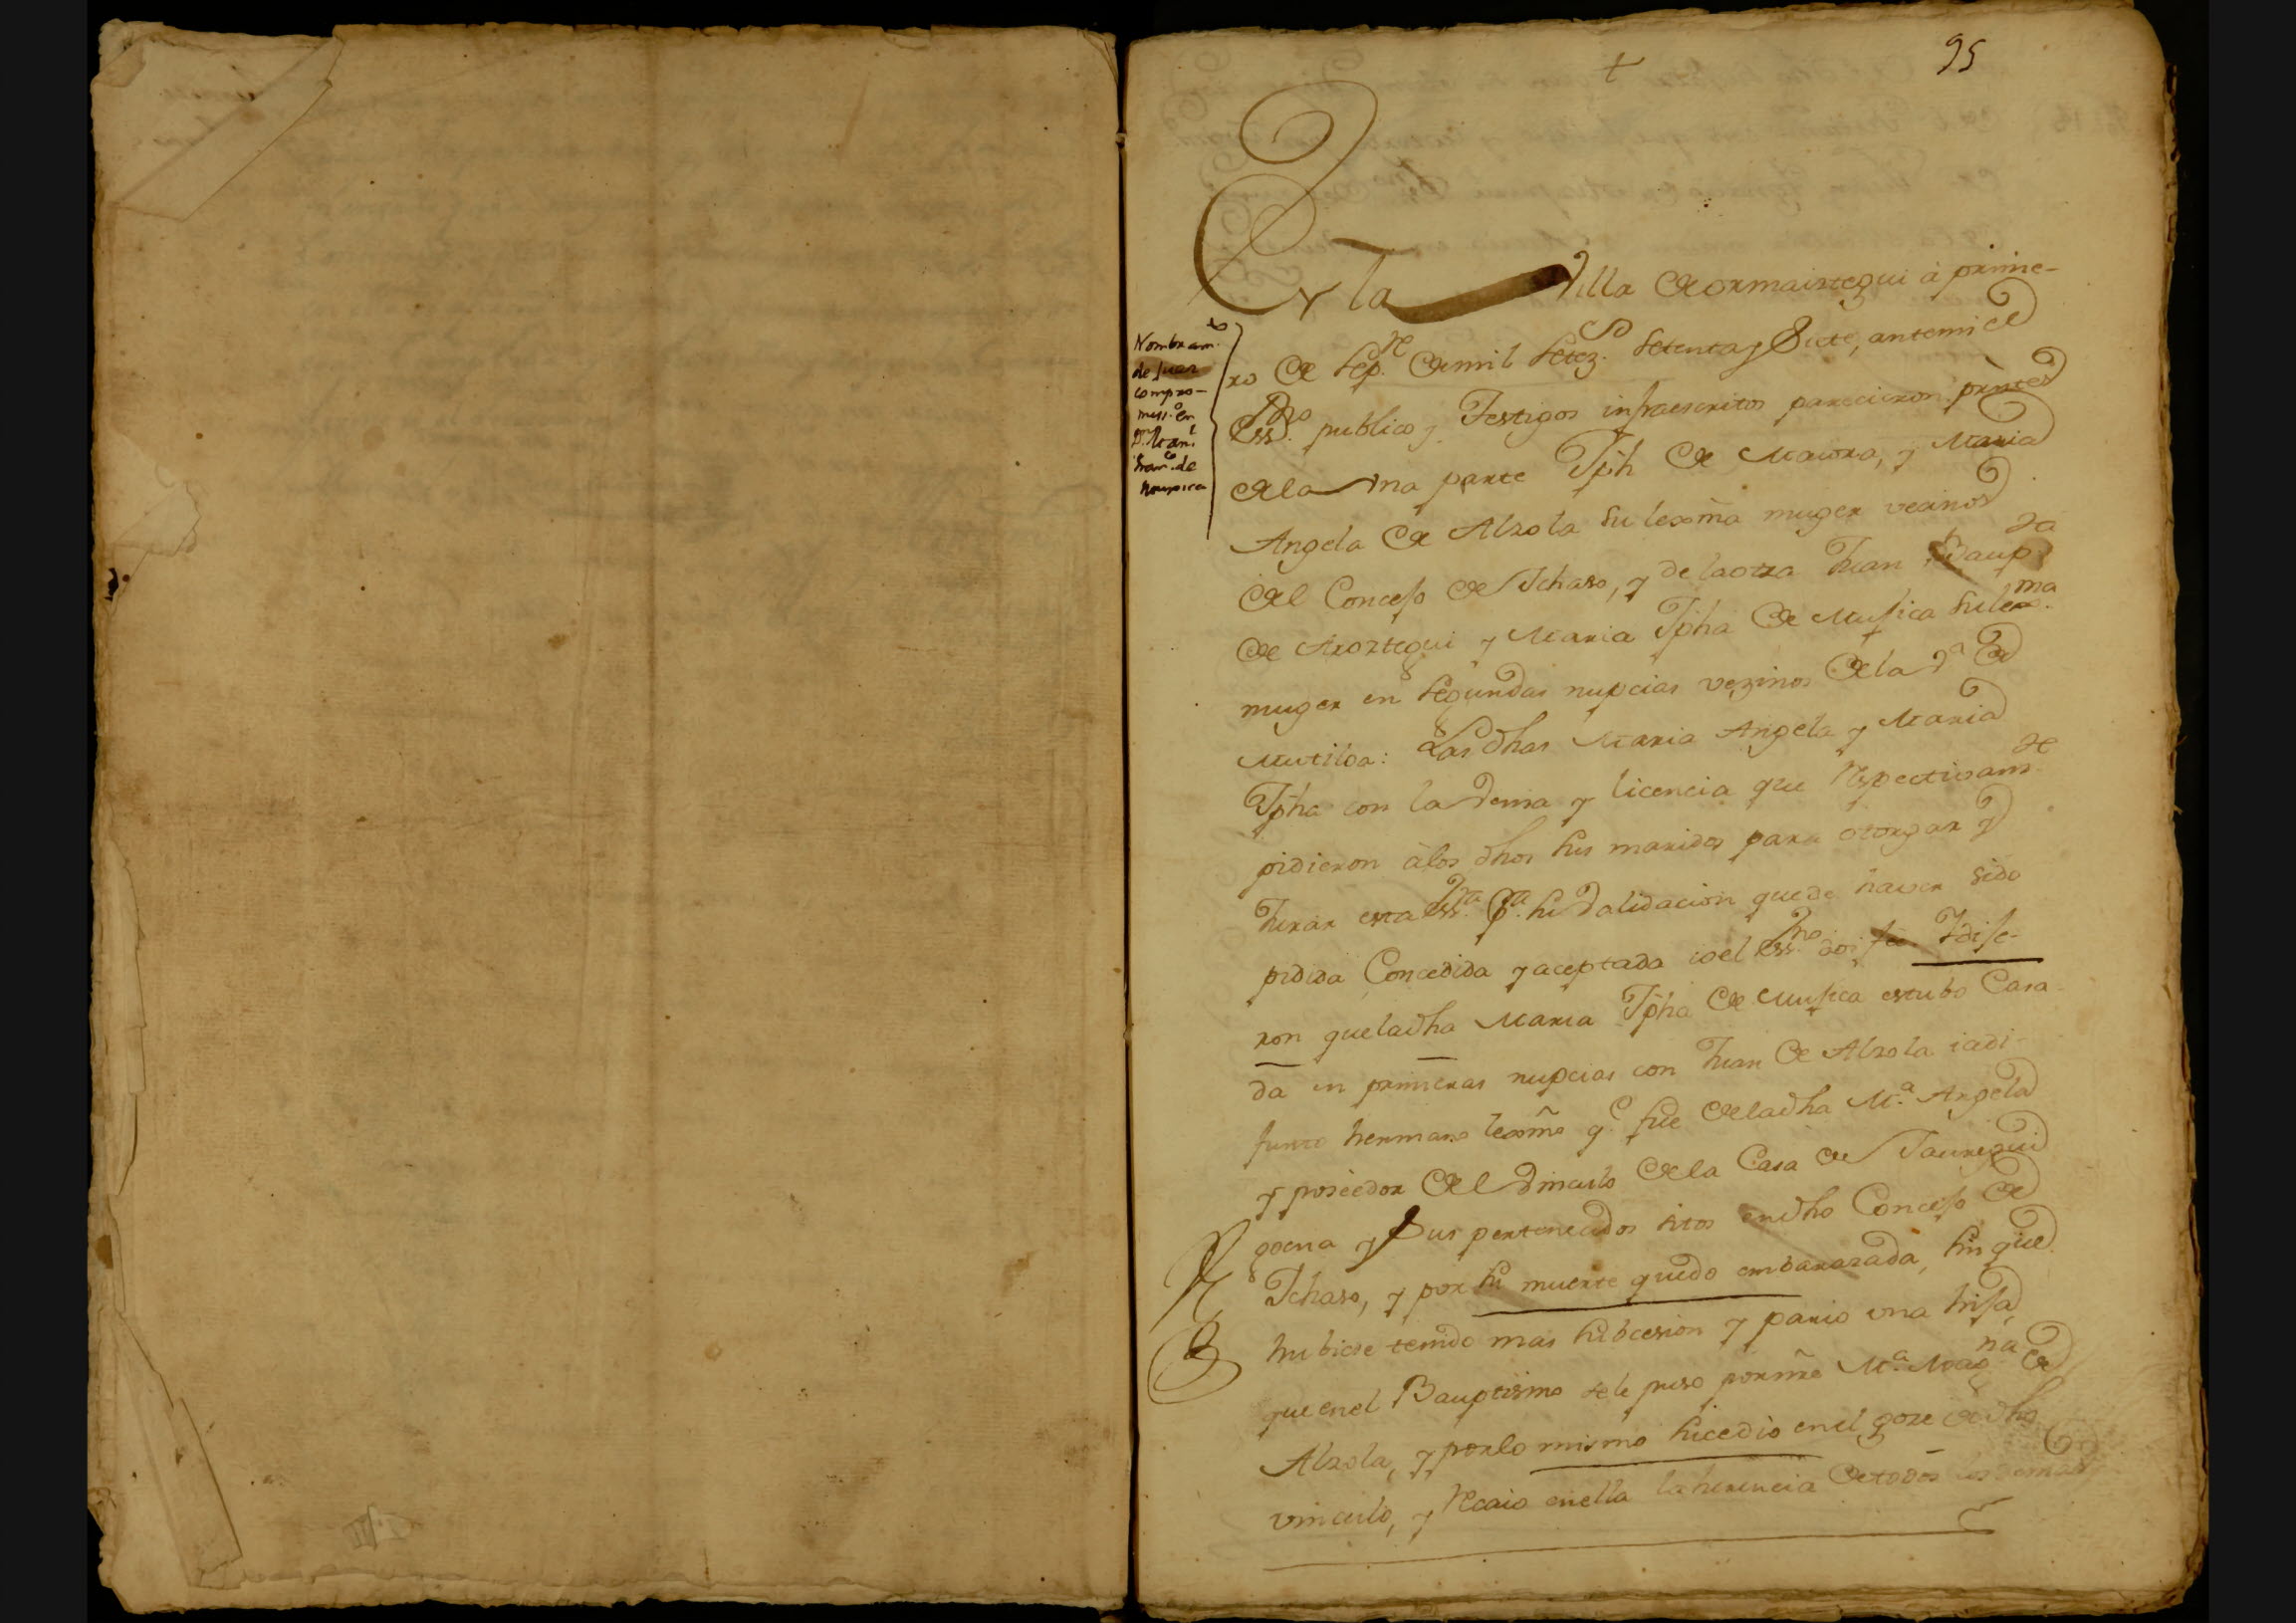 +
95
En la Villa de ormaiztegui à prime-
ro de Sep.re de mil Setez.s Setenta y Siete, antemi el
Ess.no publico y Testigos infraescritos parecieron prntes
de la vna parte Jph de Maiora, y Maria
Angela de Alzola su lexma muger vecinos
del Concejo de Ichaso, y de la otra Juan Baup.ta
de Aroztegui y Maria Jpha de Musica su lex.ma
muger en segundas nupcias vezinos de la V.a de
Mutiloa: Las dhas Maria Angela y Maria
Jpha con la Venia y licencia que respectivam.te
pidieron àlos dhos sus maridos para otorgar y
Jurar esta Ess.ra P.a su Validacion que de haver sido
pidida Concedida y aceptada io el Ess.no doi fee. Y dije-
ron que la dha Maria Jpha de Musica estubo Casa-
da en primeras nupcias con Juan de Alzola ia di-
funto hermano lexmo q.e fue de la dha M.a Angela
y poseedor del Vinculo de la Casa de Jauregui
goena y Sus pertenecidos sitos en dho Concejo de
Ichaso, y por su muerte quedo embarazada, sin que
hubiese tenido mas subcesion y pario vna hija,
que en el Bauptismo se le puso por nre M.a Mag.na de
Alzola, y por lo mismo sucedio en el goze de dho
vinculo, y recaio en ella la herencia de todos los demas
Nombram.to
de Juez
compro-
miss.o en
D.n Man.l
Fran.co de